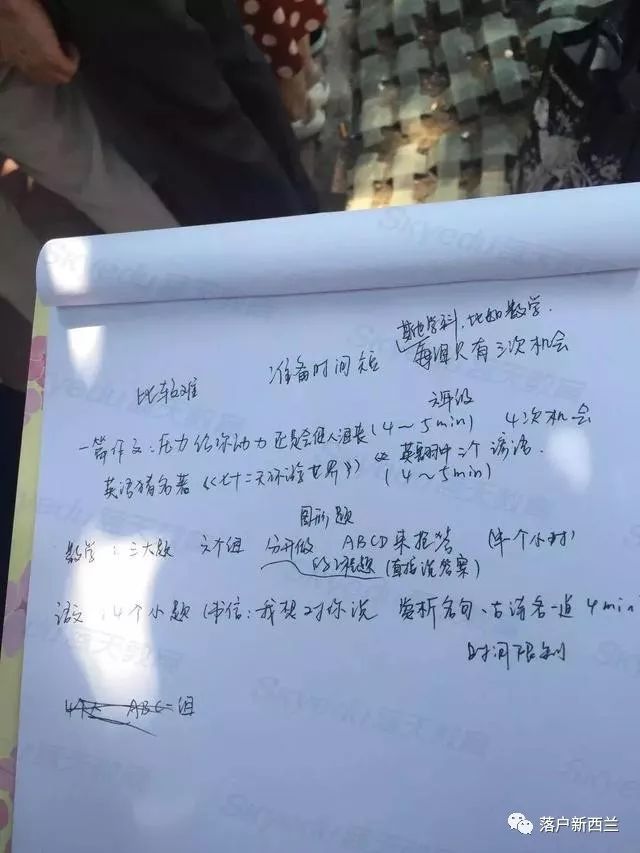 其他学科，比如数学．
准备时间短 每组只有三次机会
比较难
六年级
一篇作文：压力给你动力还是会使人沮丧（4～5min） 4次机会
英语猜名著《七十二天环游世界》 英翻中二个谚语．
（4～5min）
图形题
数学：三大题 六个组 分开做 ABCD来抢答 （半个小时）
（直接说答案）
语文：4个小题（书信：我想对你说 赏析名句、古诗各一道 4min
时间限制
4个 ABC 组
Skyedu蓝天教育
落户新西兰